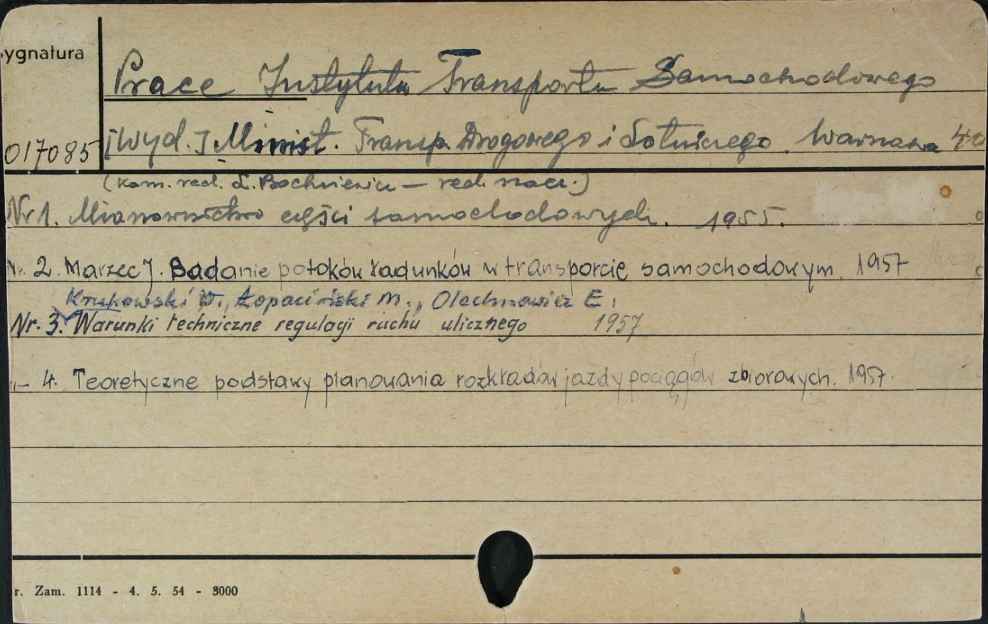 ygnatura
Prace Instytutu Transportu Samochodowego
017085 [Wyd.] Minist. Transp. Drogowego i Lotniczego. Warszawa 40
(kom. red. L. Bochniewicz — red. nacz.)
Nr 1. Mianownictwo części samochodowych. 1955.
Nr. 2. Marzec J. Badanie potoków ładunków w transporcie samochodowym. 1957
Krupowski W., Łopaciński M., Olechnowicz E.
Nr. 3. Warunki techniczne regulacji ruchu ulicznego 1957
„— 4. Teoretyczne podstawy planowania rozkładów jazdy pociągów zbiorowych. 1957.
r. Zam. 1114 - 4. 5. 54 - 3000